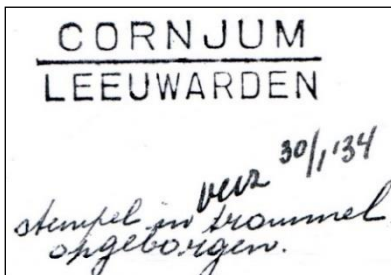 CORNJUM
LEEUWARDEN
verz 30/1 '34
stempel in trommel
opgeborgen.